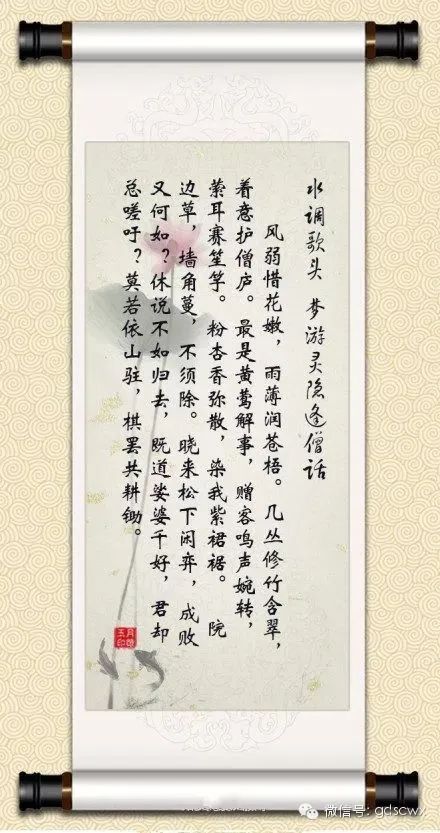 水调歌头 梦游灵隐逢僧话
风弱惜花嫩，雨薄润苍梧。几丛修竹含翠，
着意护僧庐。最是黄莺解事，赠客鸣声婉转，
萦耳赛笙竽。粉杏香弥散，染我紫裙裾。 院
边草，墙角蔓，不须除。晓来松下闲弈，成败
又何如？休说不如归去，既道娑婆千好，君却
总嗟吁？莫若依山驻，棋罢共耕锄。
微信号: gdscwx